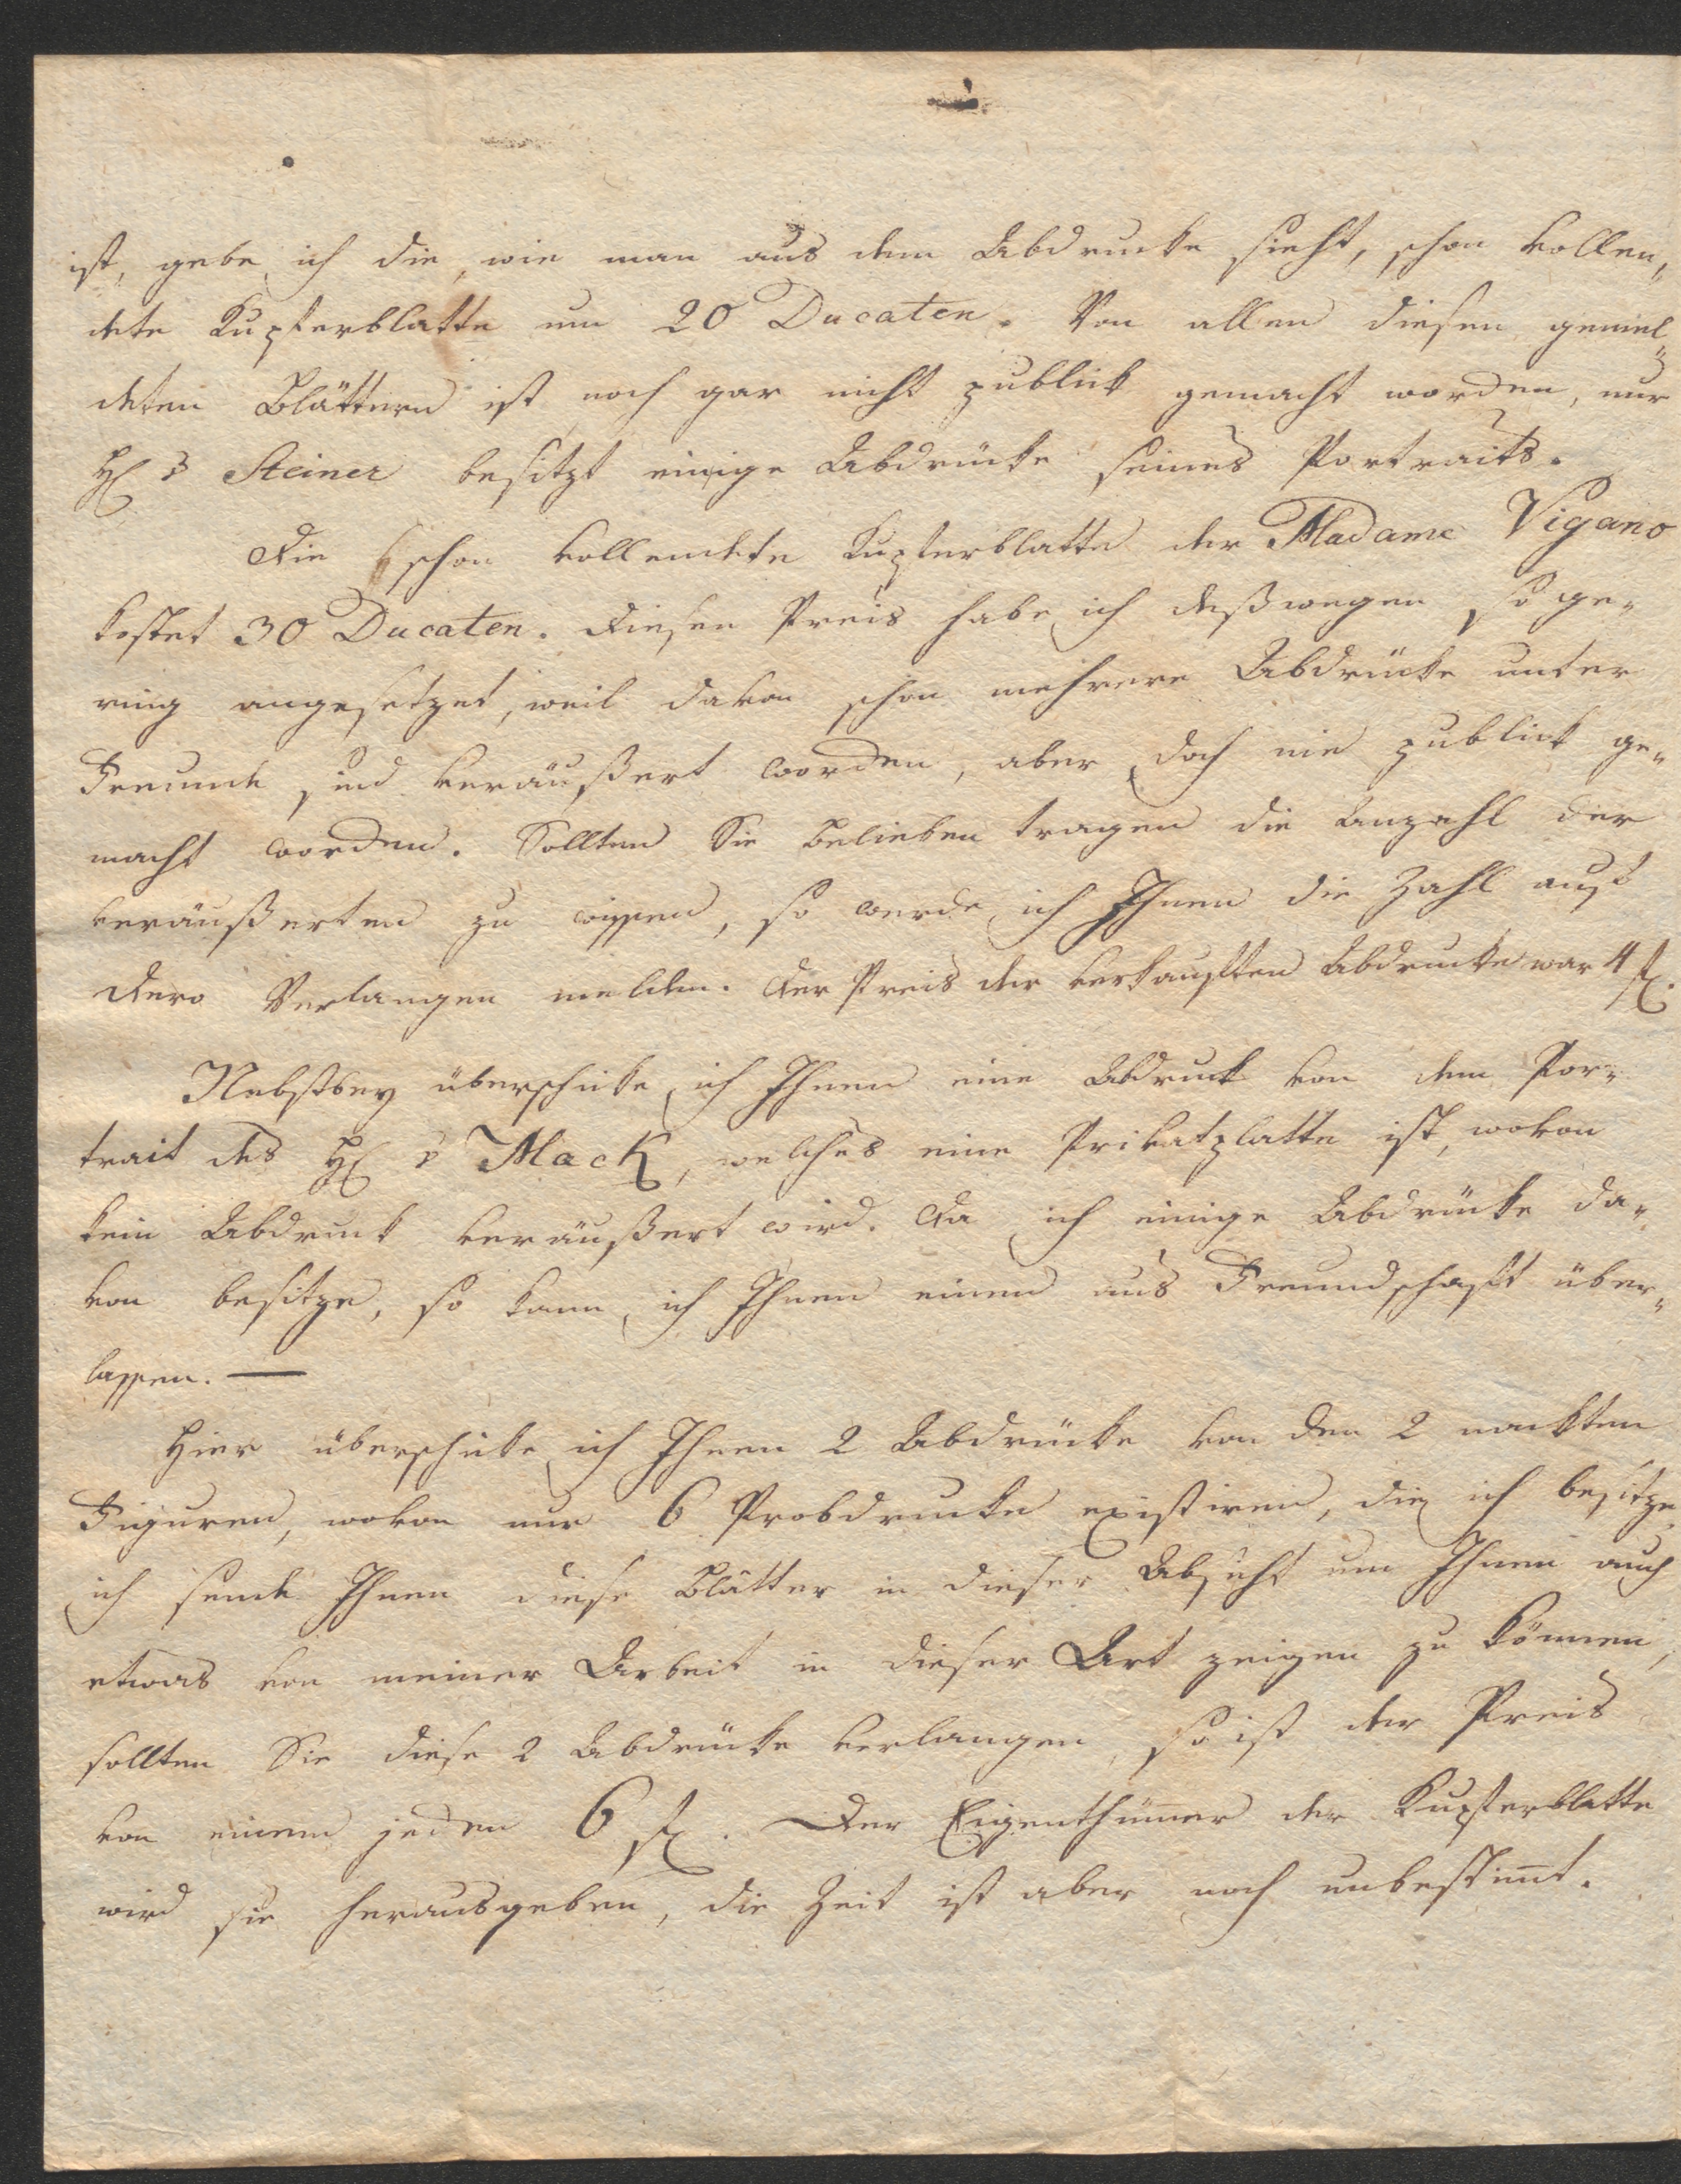 ist, gebe ich die, wie man aus dem Abdrucke sieht, schon vollen„
dete Kupferblatte um 20 Ducaten. Von allen diesen gemel„
deten Blättern ist noch gar nicht publick gemacht worden, nur
H: v Steiner besitzt einige Abdrücke seines Portraits.
Die schon vollendete Kupferblatte der Madame Vigano
kostet 30 Ducaten. Diesen Preis habe ich deßwegen so ge„
ring angesetzet, weil davon schon mehrere Abdrücke unter
Freunde sind veräußert worden, aber doch nie publick ge„
macht worden. Sollten Sie Belieben tragen die Anzahl der
veräußerten zu wissen, so werde ich Ihnen die Zahl auf
dero Verlangen melden. Der Preis der verkauften Abdrucke war 4 f.
Nebstbey überschicke ich Ihnen eine Abdruck von dem Por„
trait des H: v Mack, welches eine Privatplatte ist, wovon
kein Abdruck veräußert wird. Da ich einige Abdrücke da„
von besitze, so kann ich Ihnen einen aus Freundschaft über„
lassen. —
Hier überschicke ich Ihnen 2 Abdrücke von den 2 nackten
Figuren, wovon nur 6 Probdrucke existiren, die ich besitze
ich sende Ihnen diese Blätter in dieser Absicht um Ihnen auch
etwas von meiner Arbeit in dieser Art zeigen zu können,
sollten Sie diese 2 Abdrücke verlangen, so ist der Preis
von einem jeden 6 f. Der Eigenthümer der Kupferblatte
wird sie herausgeben, die Zeit ist aber noch unbestim̄t.